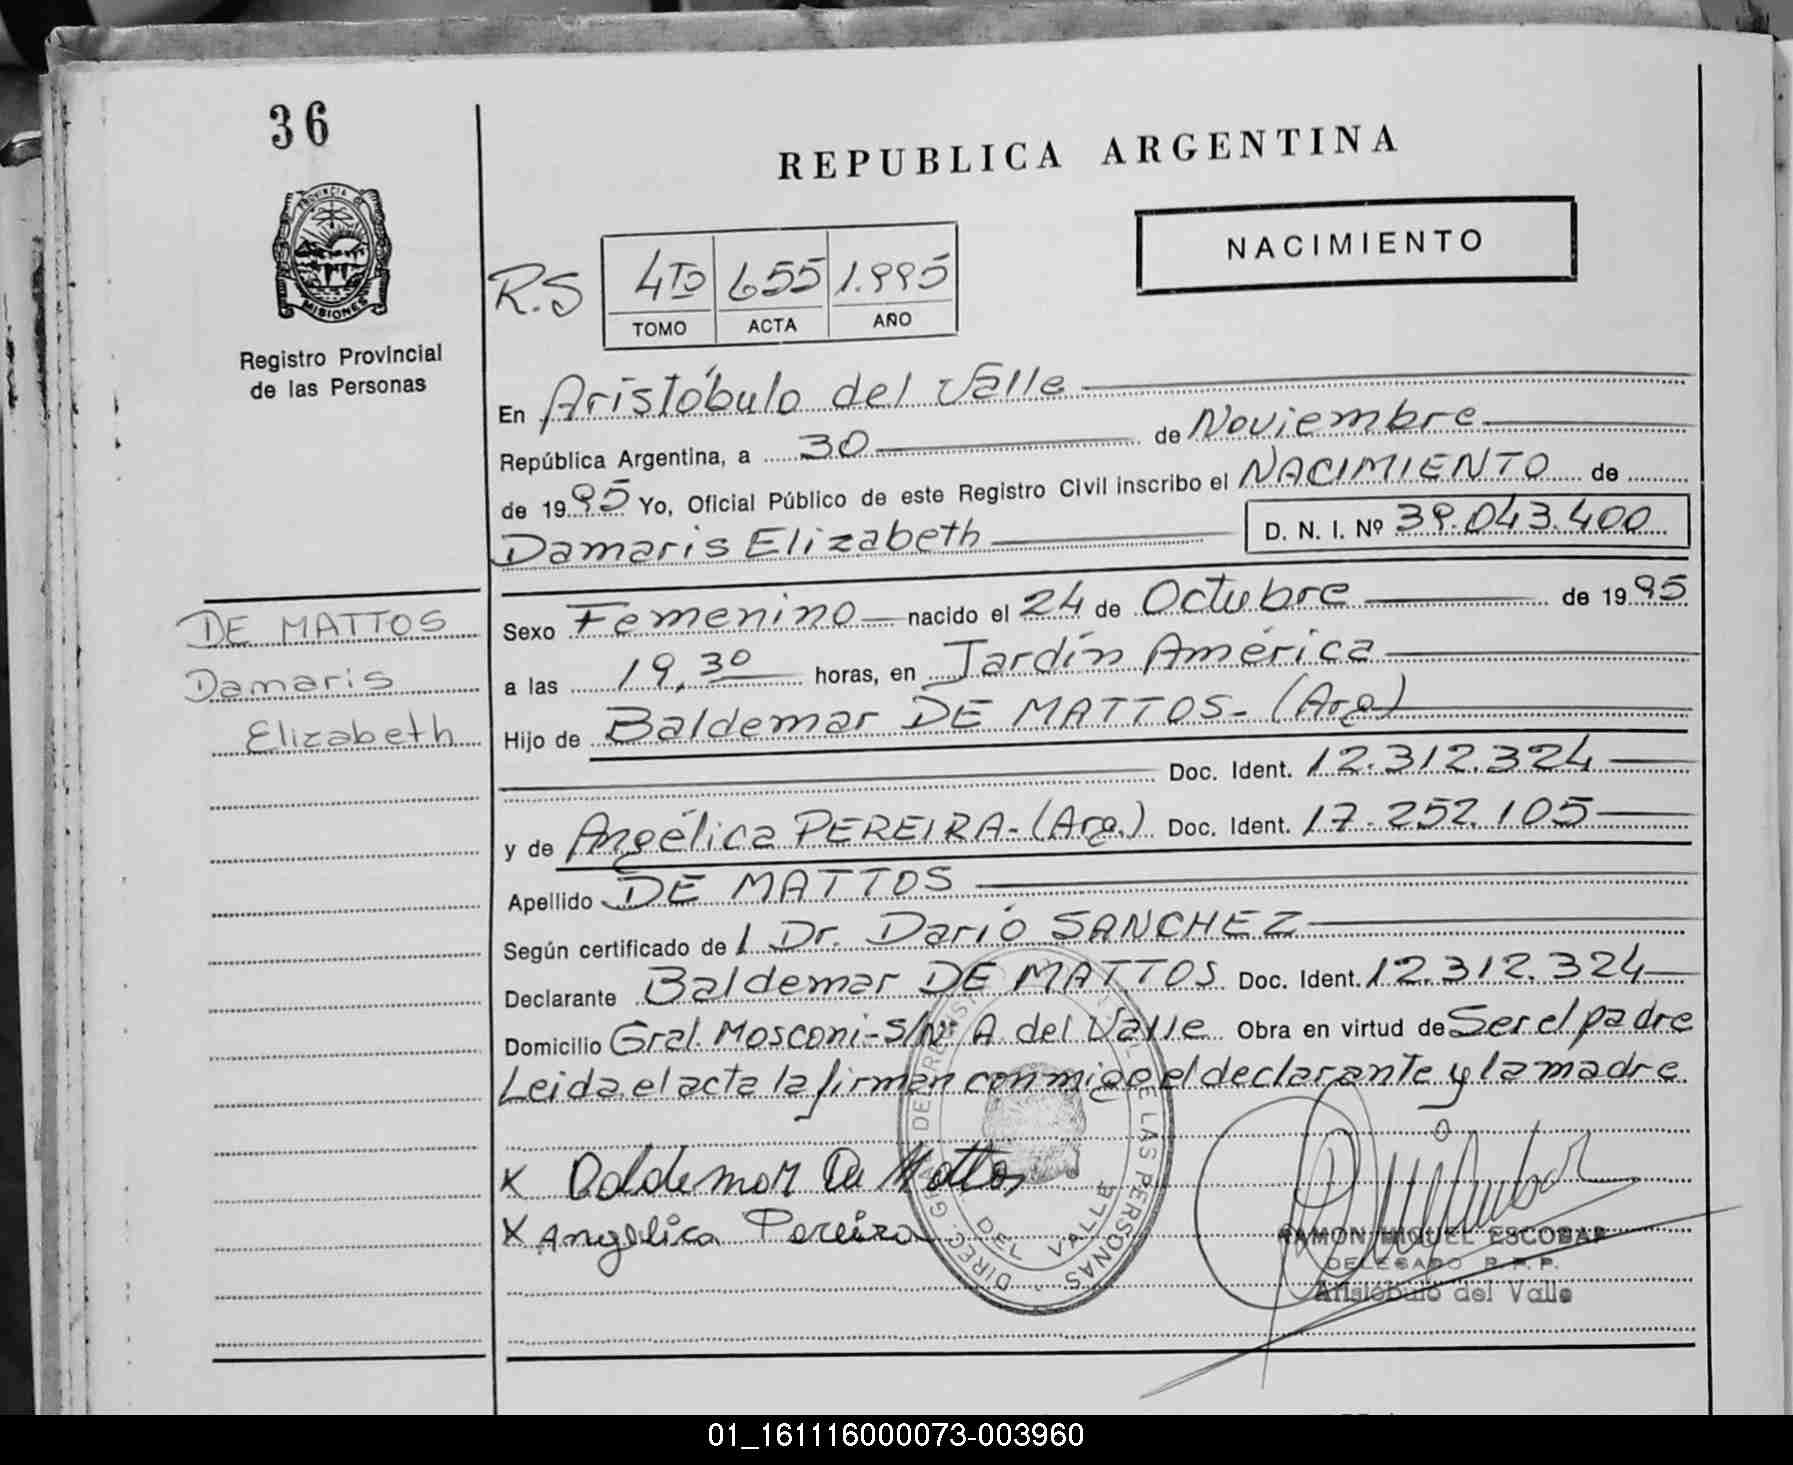 36
REPUBLICA ARGENTINA
PROVINCIA DE
MISIONES
NACIMIENTO
R.S
4TO 655 1.995
TOMO ACTA AÑO
Registro Provincial
de las Personas
En Aristóbulo del Valle
República Argentina, a 30 de Noviembre
de 1995 Yo, Oficial Público de este Registro Civil inscribo el NACIMIENTO de
Damaris Elizabeth D. N. I. Nº 39.043.400
DE MATTOS
Damaris
Elizabeth
Sexo Femenino nacido el 24 de Octubre de 1995
a las 19,30 horas, en Jardín América
Hijo de Baldemar DE MATTOS- (Arg)
Doc. Ident. 12.312.324
y de Angélica PEREIRA- (Arg.) Doc. Ident. 17.252.105
Apellido DE MATTOS
Según certificado de l Dr. Darió SANCHEZ
Declarante Baldemar DE MATTOS Doc. Ident. 12.312.324
Domicilio Gral. Mosconi-S/Nº A. del Valle Obra en virtud de Ser el padre
Leida el acta la firman conmigo el declarante y la madre
x Baldemar De Mattos
x Angelica Pereira
DEL VALLE
RAMON MIGUEL ESCOBAR
DELEGADO R.P.P.
Aristóbulo del Valle
01_161116000073-003960